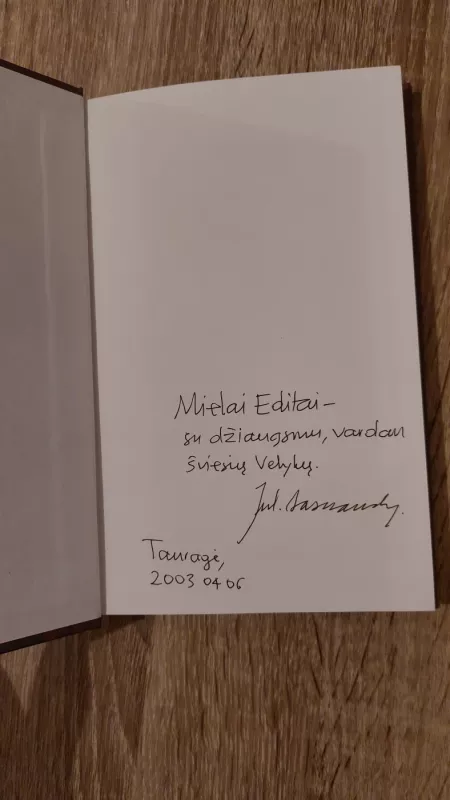 Mielai Editai –
su džiaugsmu, vardan
šviesių Velykų.
Jul.
Tauragė,
2003 04 06